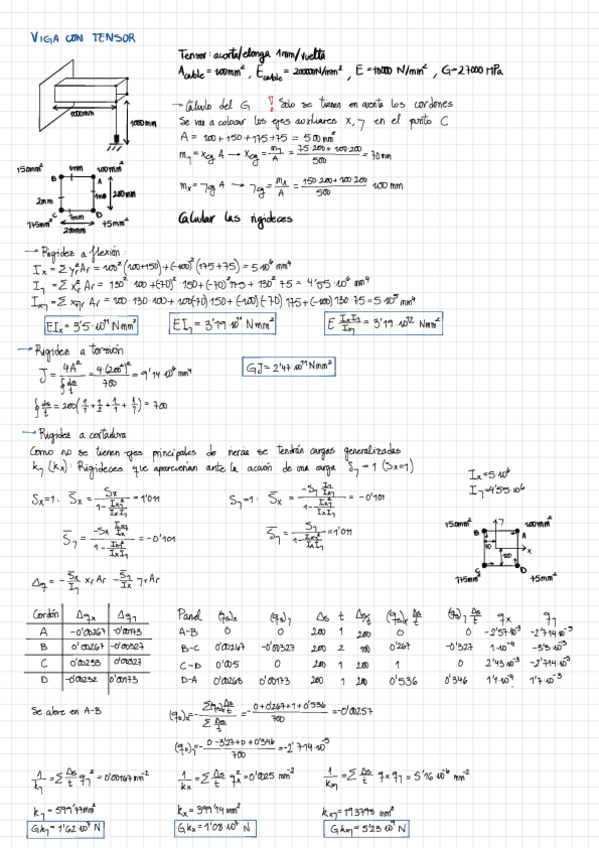 VIGA CON TENSOR
Tensor: acorta/elonga 1mm/vuelta
A cable = 100mm², E cable = 200000N/mm², E = 70000 N/mm², G=27000 MPa
1000mm
1000mm
→ Cálculo del G ! Solo se tienen en cuenta los cordones
Se va a colocar los ejes auxiliares x, y en el punto C
A = 100+150+175+75 = 500 mm²
m_y = x_cg A → x_cg = m_y/A = (75·200+100·200)/500 = 70mm
m_x = y_g A → y_g = m_x/A = (150·200+100·200)/500 100 mm
150mm² 1mm 100mm²
B A
2mm 1mm 200mm
C 1mm D
175mm² 200mm 75mm²
Calcular las rigideces
→ Rigidez a flexión:
I_x = Σ y_r² A_r = 100² (100+150)+(-100)² (175+75) = 5·10⁶ mm⁴
I_y = Σ x_r² A_r = 130²·100+(-70)²·150+(-70)²·175+130²·75 = 4'55·10⁶ mm⁴
I_xy = Σ xy_r A_r = 100·130·100+100(-70)150+(-100)(-70)175+(-100)130·75 = 5·10⁵ mm⁴
EI_x = 3'5·10¹¹ Nmm²
EI_y = 3'19·10¹¹ Nmm²
E I_x I_y/I_xy = 3'19·10¹² Nmm²
→ Rigidez a torsión
J = 4A²/∮ds/t = 4(200²)²/700 = 9'14·10⁶ mm⁴
GJ = 2'47·10¹¹ Nmm²
∮ds/t = 200(1/1+1/2+1/1+1/1) = 700
→ Rigidez a cortadura
Como no se tienen ejes principales de inercia se tendrán cargas generalizadas
k_y (k_x): Rigideces que aparecerían ante la acción de una carga S_y = 1 (S_x=1)
I_x=5·10⁶
I_y=4'55·10⁶
S_x=1: S̄_x = S_x/(1-I_xy²/(I_x I_y)) = 1'011
S_y=1: S̄_x = (-S_y I_xy/I_x)/(1-I_xy²/(I_x I_y)) = -0'101
S̄_y = (-S_x I_xy/I_y)/(1-I_xy²/(I_x I_y)) = -0'101
S̄_y = S_y/(1-I_xy²/(I_x I_y)) = 1'011
150mm² y 100mm²
B A
70 x
100
C D
175mm² 75mm²
Δq = -S̄_x/I_y x_r A_r - S̄_y/I_x y_r A_r
Cordón Δq_x Δq_y
A -0'00267 -0'00173
B 0'00267 -0'00327
C 0'00233 0'00327
D -0'00232 0'00173
Panel (q_b)_x (q_b)_y Δs t Δs/t (q_b)_x Δs/t (q_b)_y Δs/t q_x q_y
A-B 0 0 200 1 200 0 0 -2'57·10⁻³ -2'714·10⁻⁵
B-C 0'00267 -0'00327 200 2 100 0'267 -0'327 1·10⁻⁴ -3'3·10⁻³
C-D 0'005 0 200 1 200 1 0 2'43·10⁻³ -2'714·10⁻⁵
D-A 0'00268 0'00173 200 1 200 0'536 0'346 1'1·10⁻⁴ 1'7·10⁻³
Se abre en A-B
(q_0)_x = -Σ(q_b)_x Δs/t / Σ Δs/t = -(0+0'267+1+0'536)/700 = -0'00257
(q_0)_y = -(0-0'327+0+0'346)/700 = -2'714·10⁻⁵
1/k_y = Σ Δs/t q_y² = 0'00167 mm⁻²
1/k_x = Σ Δs/t q_x² = 0'0025 mm⁻²
1/k_xy = Σ Δs/t q_x q_y = 5'16·10⁻⁶ mm⁻²
k_y = 599'77mm²
k_x = 399'14 mm²
k_xy = 193798 mm²
Gk_y = 1'62·10⁷ N
Gk_x = 1'08·10⁷ N
Gk_xy = 5'23·10⁹ N